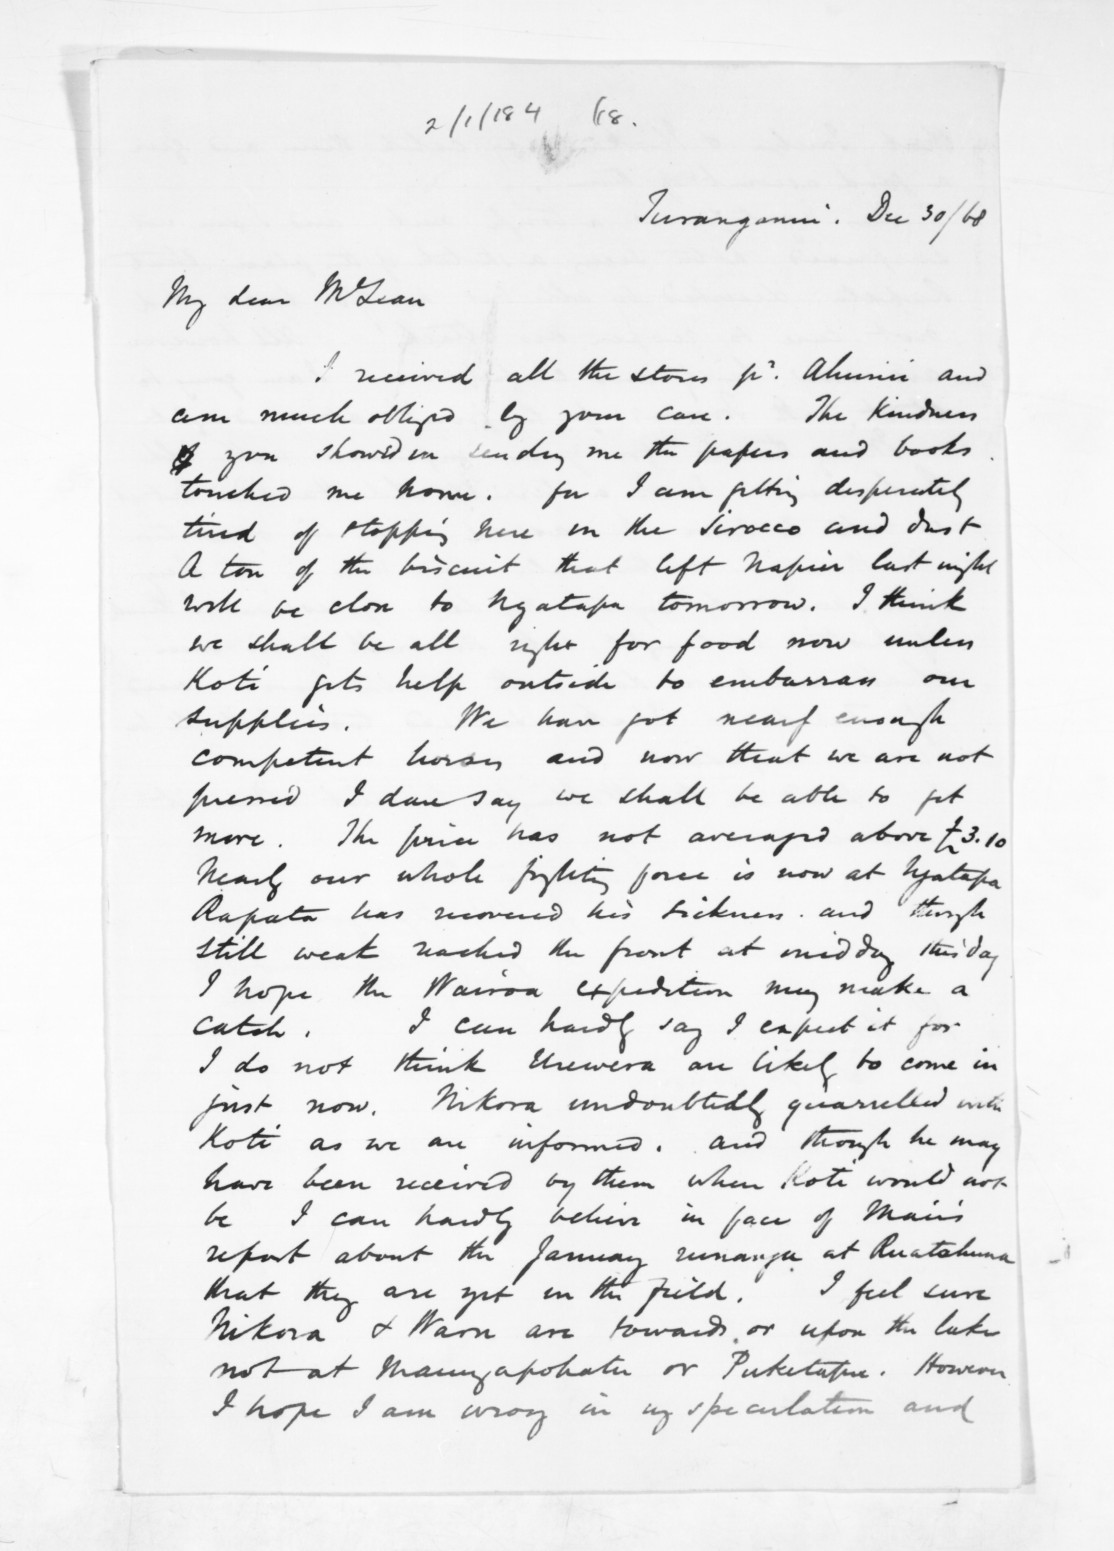 2/1/184 68.
Turanganui. Dec 30/68
My dear McLean
I received all the stores pr. Ahuriri and
am much obliged by your care. The kindness
you showed in sending me the papers and books
touched me home. for I am getting desperately
tired of stopping here in the Sirocco and dust
A ton of the biscuit that left Napier last night
will be close to Ngatapa tomorrow. I think
we shall be all right for food now unless
Koti gets help outside to embarrass our
supplies. We have got nearly enough
competent horses and now that we are not
pressed I dare say we shall be able to get
more. The price has not averaged above £3.10
Nearly our whole fighting force is now at Ngatapa
Rapata has recovered his sickness. and though
still weak reached the front at midday this day
I hope the Wairoa expedition may make a
catch. I can hardly say I expect it for
I do not think Urewera are likely to come in
just now. Nikora undoubtedly quarrelled with
Koti as we are informed. and though he may
have been received by them when Koti would not
be I can hardly believe in face of Maii's
report about the January runanga at Ruatahuna
that they are yet in the field. I feel sure
Nikora & Waru are towards or upon the lake
not at Maungapohatu or Puketapu. However
I hope I am wrong in my speculation and